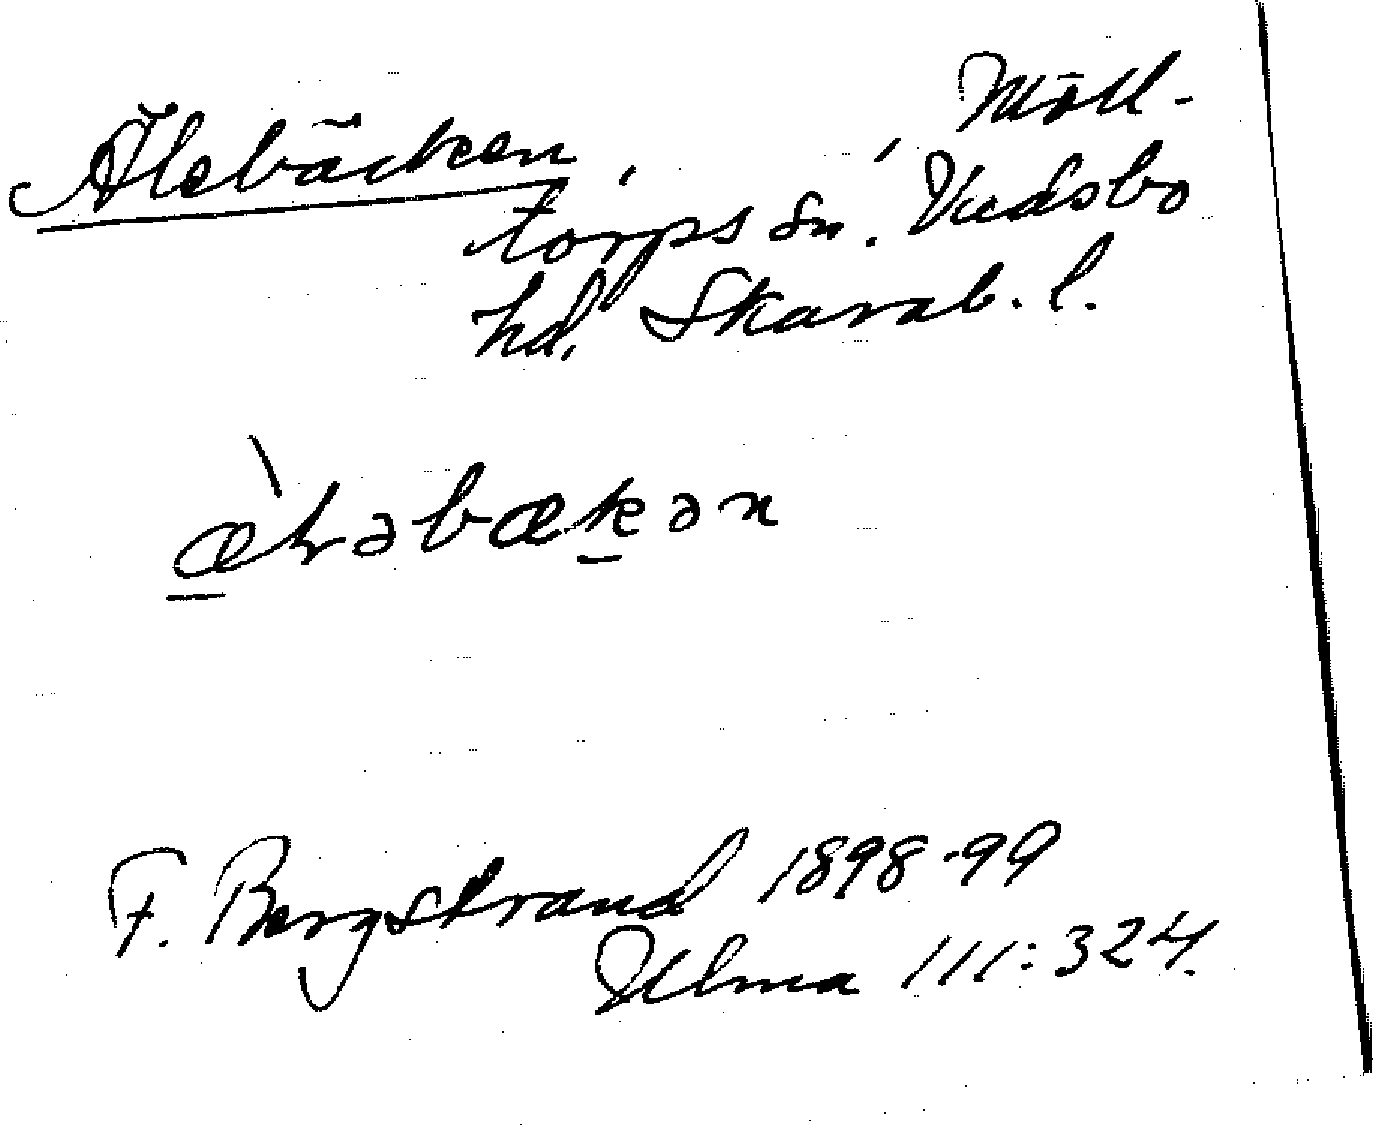 Älebäcken, , Möll-
torps sn. Vadsbo
hd. Skarab. l.
æ̀ɫəbækən
F. Bergstrand 1898-99
Ulma 111:324.